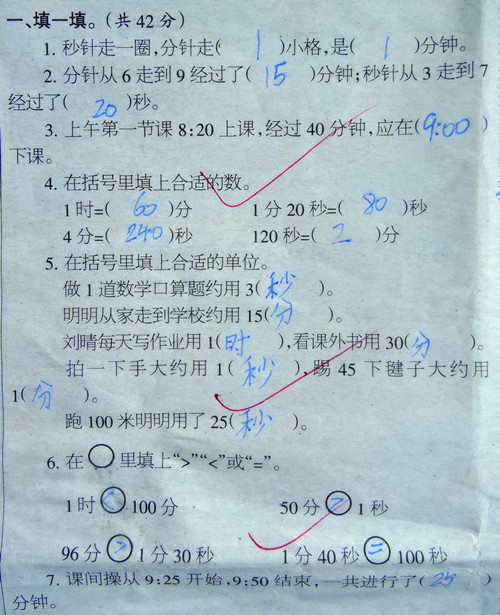 一、填一填。(共42分)
1. 秒针走一圈,分针走( 1 )小格,是( 1 )分钟。
2. 分针从6走到9经过了( 15 )分钟;秒针从3走到7
经过了( 20 )秒。
3. 上午第一节课8:20上课,经过40分钟,应在(9:00)
下课。
4. 在括号里填上合适的数。
1时=( 60 )分 1分20秒=( 80 )秒
4分=( 240 )秒 120秒=( 2 )分
5. 在括号里填上合适的单位。
做1道数学口算题约用3(秒)。
明明从家走到学校约用15(分)。
刘晴每天写作业用1(时),看课外书用30(分)。
拍一下手大约用1(秒),踢45下毽子大约用
1(分)。
跑100米明明用了25(秒)。
6. 在○里填上“>”“<”或“=”。
1时<100分 50分>1秒
96分>1分30秒 1分40秒=100秒
7. 课间操从9:25开始,9:50结束,一共进行了( 25 )
分钟。